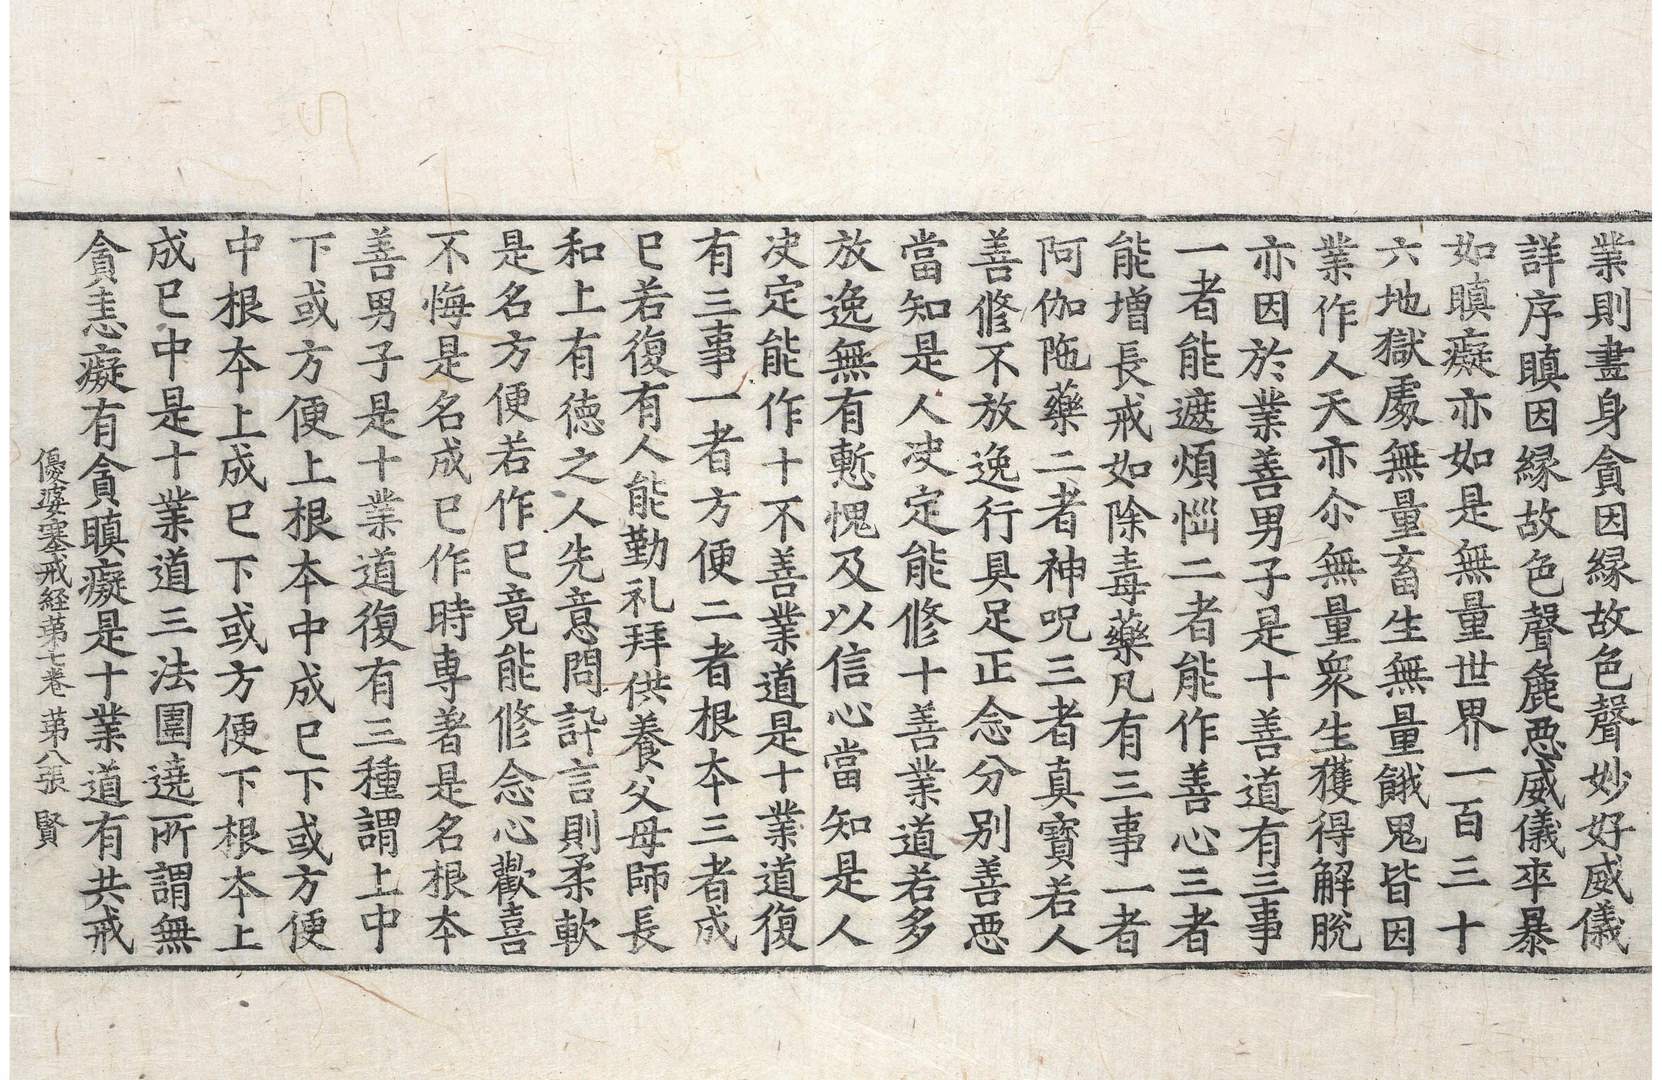 業則盡身貪因縁故色聲妙好威儀
詳序瞋因縁故色聲麁惡威儀卒暴
如瞋癡亦如是無量世界一百三十
六地獄處無量畜生無量餓鬼皆因
業作人天亦尒無量衆生獲得解脫
亦因於業善男子是十善道有三事
一者能遮煩惱二者能作善心三者
能增長戒如除毒藥凡有三事一者
阿伽陁藥二者神呪三者真寶若人
善修不放逸行具足正念分別善惡
當知是人决定能修十善業道若多
放逸無有慙愧及以信心當知是人
决定能作十不善業道是十業道復
有三事一者方便二者根夲三者成
已若復有人能勤礼拜供養父母師長
和上有徳之人先意問訊言則柔軟
是名方便若作已竟能修念心歡喜
不悔是名成已作時専著是名根夲
善男子是十業道復有三種謂上中
下或方便上根夲中成已下或方便
中根夲上成已下或方便下根夲上
成已中是十業道三法圍遶所謂無
貪恚癡有貪瞋癡是十業道有共戒
優婆塞戒経苐七卷 苐八張 賢